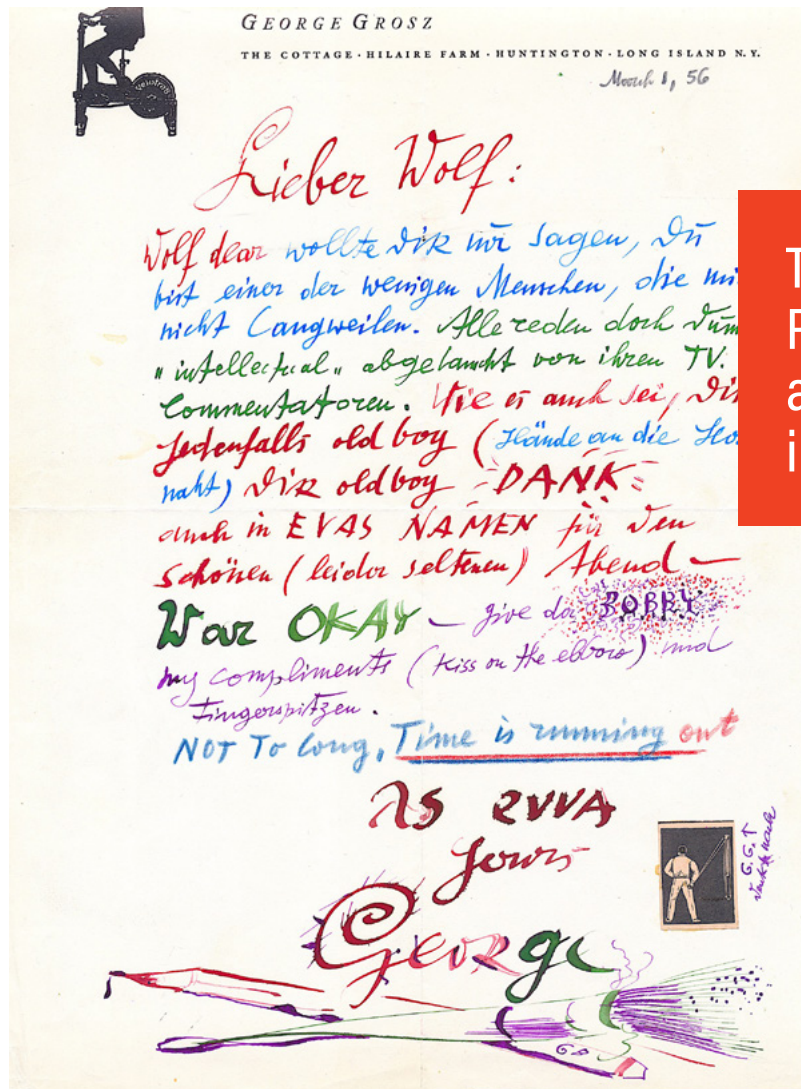 GEORGE GROSZ
THE COTTAGE · HILAIRE FARM · HUNTINGTON · LONG ISLAND N.Y.
March 1, 56
Lieber Wolf:
Wolf dear wollte dir nur sagen, Du
bist einer der wenigen Menschen, die
nicht Langweilen. Alle reden doch
"intellectual" abgelauscht von ihren TV.
Commentatoren. Wie es auch sei,
Jedenfalls old boy (Hände an die
naht) Dir old boy DANK
auch in EVAS NAMEN für den
schönen (leider seltenen) Abend —
War OKAY — give da BOBBY
my compliments (Kiss on the ) und
Fingerspitzen.
NOT To long, Time is running out
As evva
Yours
George
G.G. ↑
denkt nach
GG